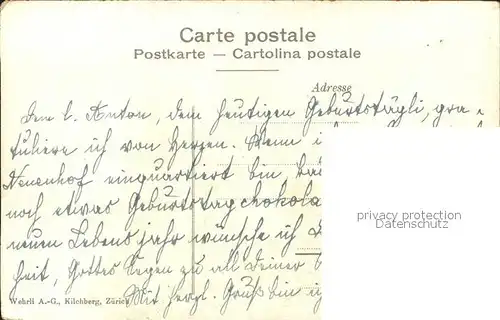 Carte postale
Postkarte — Cartolina postale
Adresse
Dem l. Anton, dem heutigen Geburtstägli, gra-
tuliere ich von Herzen. Wenn i
Neuenhof einquartiert bin,
noch etwas Geburtstagchokola
neuen Lebensjahr wünsche ich D
heit, Gottes Segen zu all deiner
Mit herzl. Gruß bin
privacy protection
Datenschutz
Wehrli A.-G., Kilchberg, Zürich